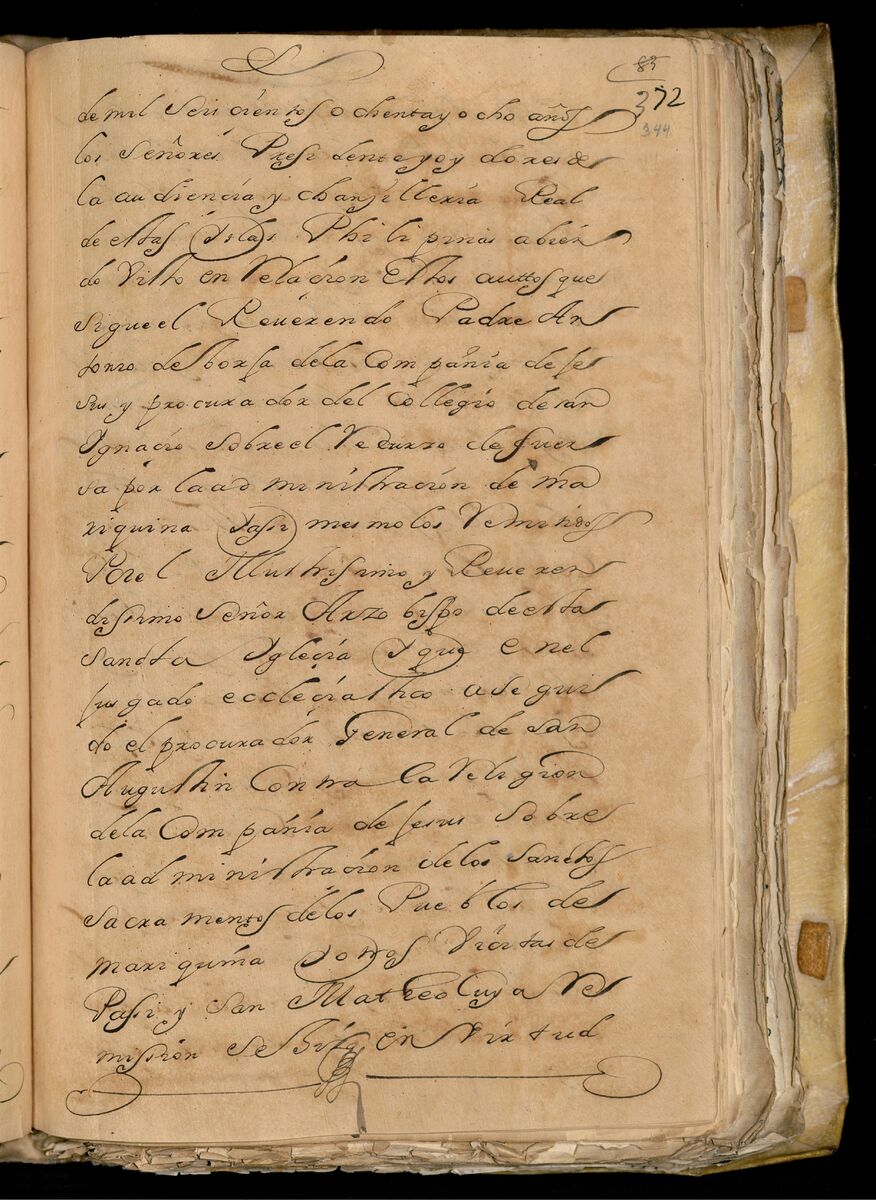 85
372
344
de mil seis cientos ochenta y ocho años
los Señores Presidente y oydores de
la audiencia y chanzilleria Real
de estas Yslas Philipinas abien
do visto en Relacion estos auttos que
sigue el Reverendo Padre An
tonio de borja de la Compañia de Je
sus y procurador del Collegio de san
Ygnacio sobre el Recurzo de fuer
sa por la administracion de ma
riquina Yassi mesmo los Remitidos
Por el Illustrisimo y Reveren
dissimo Señor Arzobispo de esta
Sancta Yglecia Y que en el
jusgado eccleciastico a segui
do el procurador General de san
Augustin Contra la Religion
de la Compañia de Jesus sobre
la administracion de los sanctos
sacramentos de los Pueblos de
mariquina Y otros Vicitas de
Passi y San Matheo Cuya Re
mission se hizo en Virtud